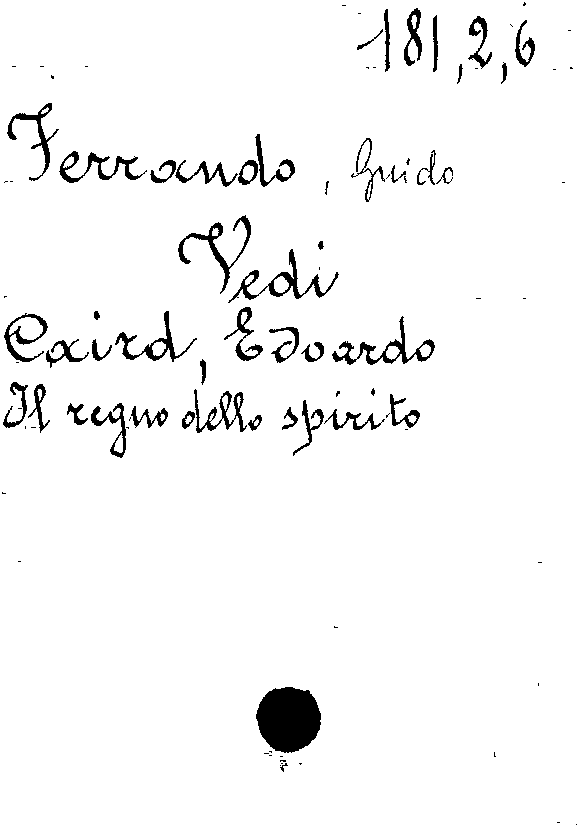 181,2,6
Ferrando, Guido
Vedi
Caird, Edoardo
Il regno dello spirito